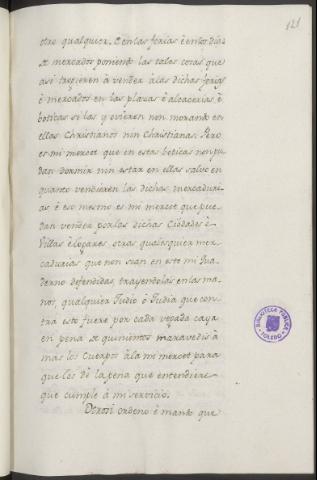 121
otro qualquier. E en las ferias è en los dias
de mercados poniendo las tales cosas que
asi trageren à vender à las dichas ferias
è mercados en las plazas è alcacerias è
boticas si las y ovieren non morando en
ellas Christianos nin Christianas. Pero
es mi merced que en estas boticas non pue
dan dormir nin estar en ellas salvo en
quanto vendieren las dichas mercaduri-
as è eso mesmo es mi merced que pue
dan vender por las dichas Ciudades è
Villas è logares, otras qualesquier mer-
cadurias que non sean en este mi Qua
derno defendidas, trayendolas en las ma-
nos, qualquier Judio è Judia que con-
tra esto fuere por cada vegada caya
en pena de quinientos maravedis à
mas los cuerpos à la mi merced para
que los dè la pena que entendiere
que cumple à mi servicio.
Otrosi ordeno è mando que
BIBLIOTECA PUBLICA
TOLEDO